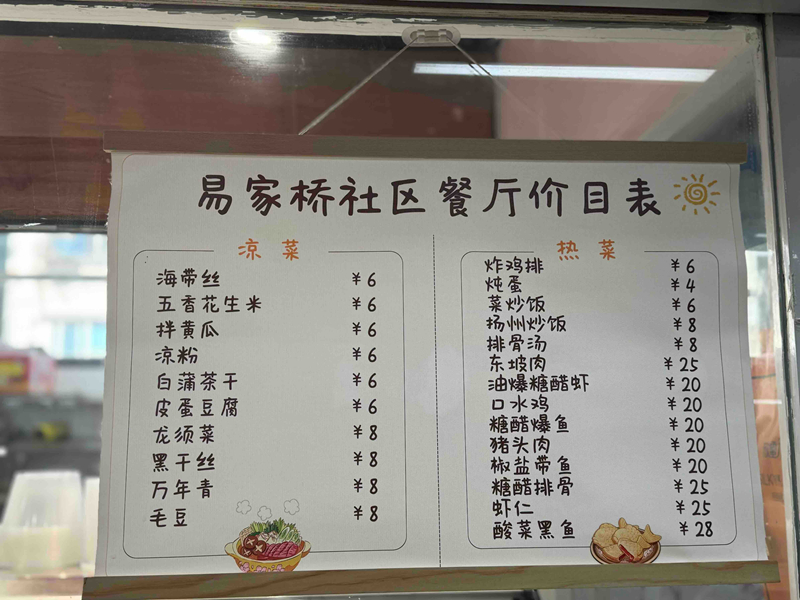 易家桥社区餐厅价目表
凉菜
海带丝 ¥6
五香花生米 ¥6
拌黄瓜 ¥6
凉粉 ¥6
白蒲茶干 ¥6
皮蛋豆腐 ¥6
龙须菜 ¥8
黑干丝 ¥8
万年青 ¥8
毛豆 ¥8
热菜
炸鸡排 ¥6
炖蛋 ¥4
菜炒饭 ¥6
扬州炒饭 ¥8
排骨汤 ¥8
东坡肉 ¥25
油爆糖醋虾 ¥20
口水鸡 ¥20
糖醋爆鱼 ¥20
猪头肉 ¥20
椒盐带鱼 ¥20
糖醋排骨 ¥25
虾仁 ¥25
酸菜黑鱼 ¥28